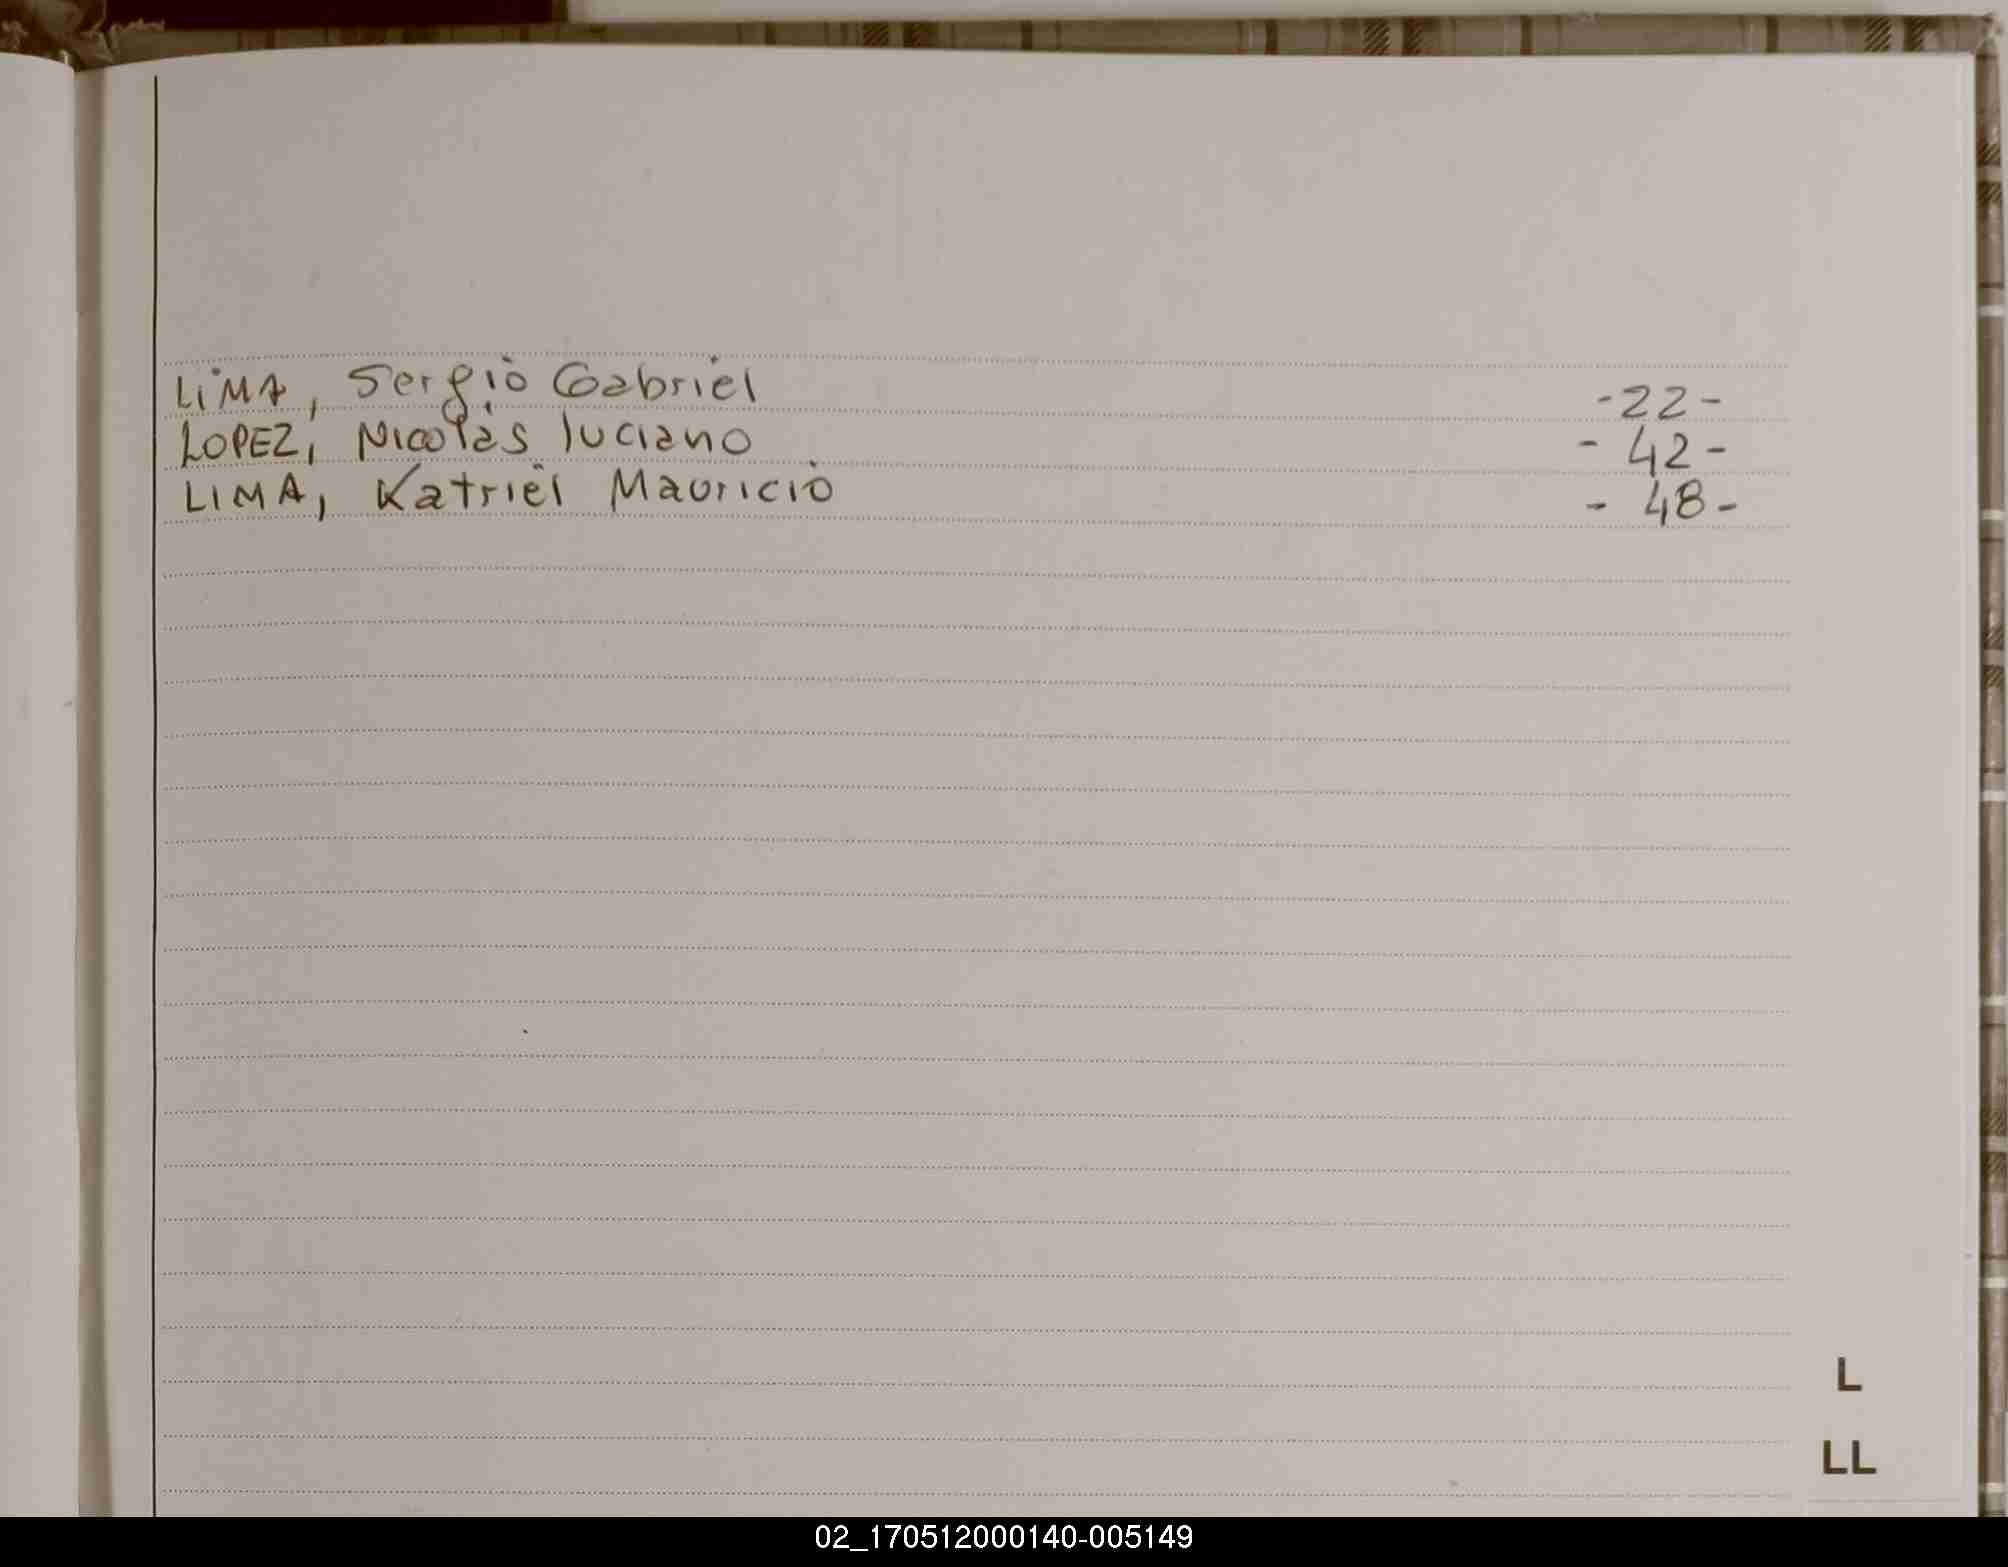 LIMA, Sergio Gabriel -22-
LOPEZ, Nicolas luciano - 42-
LIMA, Katriel Mauricio - 48-
L
LL
02_170512000140-005149